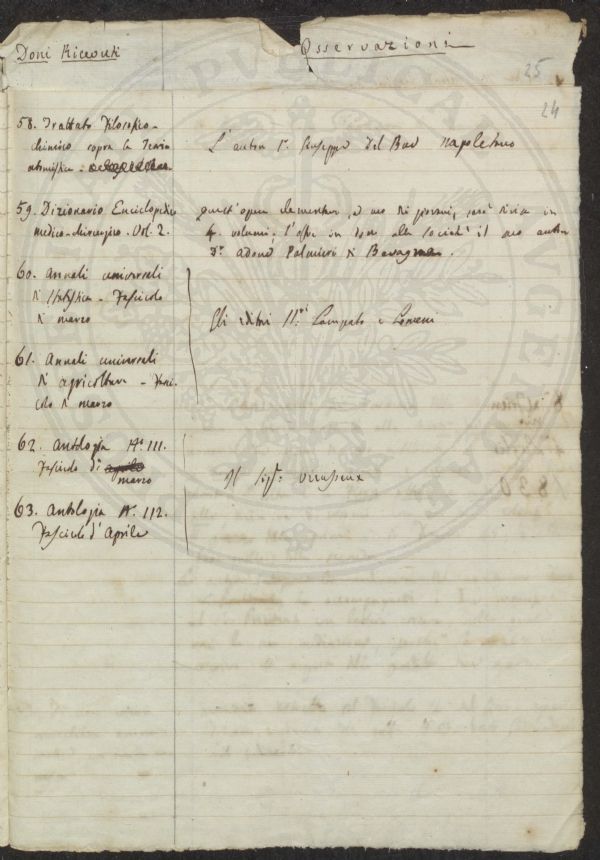 Doni Ricevuti
Osservazioni
25
24
58. Trattato Filosofico-
chimico sopra la Teoria
atomistica -
L'autore Sr. Giuseppe Del Napoletano
59. Dizionario Enciclopedico
medico-chirurgico. Vol. 2.
quest'opera elementare, ad uso di giovani, sarà divisa in
4 volumi; l'offre in dono alla società il suo autore
Dr. Adone Palmieri di Bevagna.
60. Annali universali
di Statistica - Fascicolo
di marzo
Gli editori SSri. Lampato e
61. Annali universali
di agricoltura - Fasci-
colo di marzo
62. Antologia No. 111.
Fascicolo di aprile
marzo
Il Sigr. Vieusseux
63. Antologia No. 112.
Fascicolo d'Aprile
1830